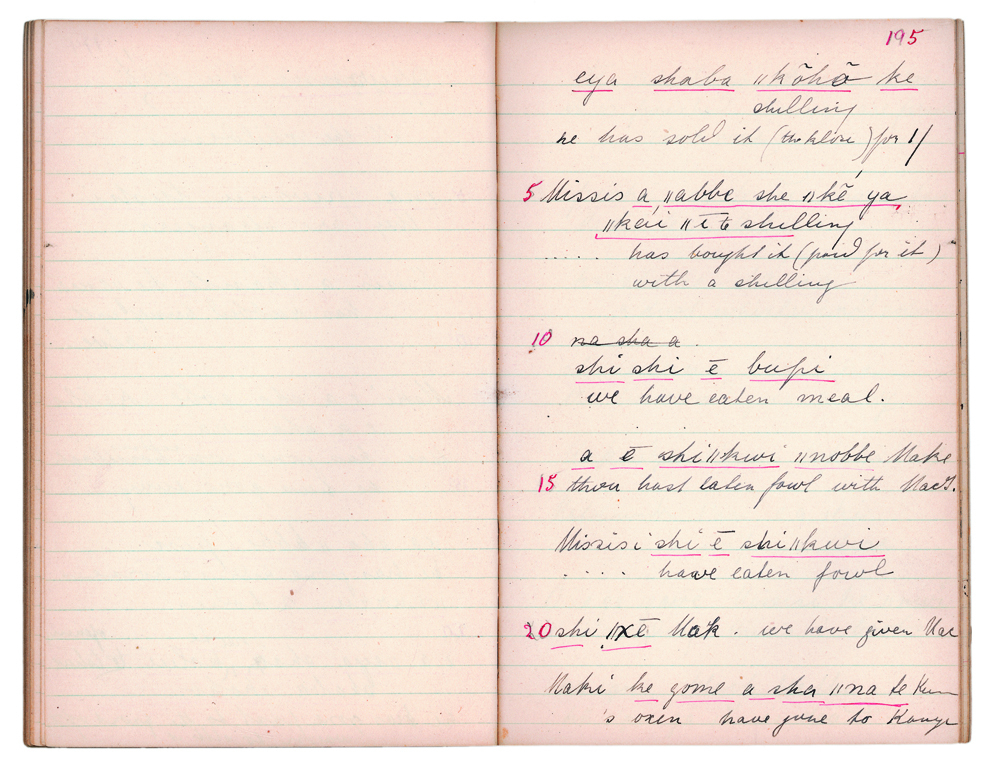 195
eya shaba ǁkōhō ke
shilling
he has sold it (the kloze) for 1/
5 Missis a ǁabbe she ǁkē ya
ǁkái ǁī te shilling
..... has bought it (paid for it)
with a shilling
10 na sha a
shi shi ē bupi
we have eaten meal.
a ē shiǁkwi ǁnobbe Make
15 thou hast eaten fowl with
Missis i shi ē shiǁkwi
.... have eaten fowl
20 shi ǁxē Mak. we have given Mac
Maki ke gome a sha ǁna te
's oxen have gone to